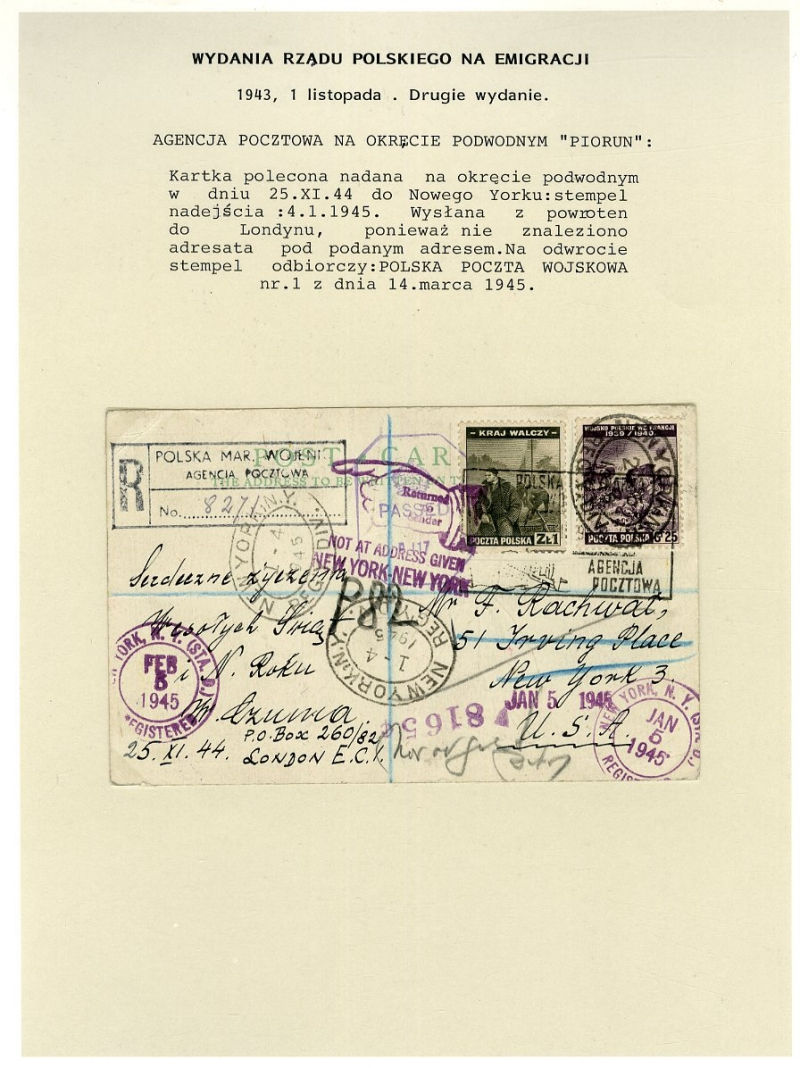 WYDANIA RZĄDU POLSKIEGO NA EMIGRACJI
1943, 1 listopada . Drugie wydanie.
AGENCJA POCZTOWA NA OKRĘCIE PODWODNYM "PIORUN":
Kartka polecona nadana na okręcie podwodnym
w dniu 25.XI.44 do Nowego Yorku:stempel
nadejścia :4.1.1945. Wysłana z powroten
do Londynu, ponieważ nie znaleziono
adresata pod podanym adresem.Na odwrocie
stempel odbiorczy:POLSKA POCZTA WOJSKOWA
nr.1 z dnia 14.marca 1945.
POLSKA MAR. WOJEN
AGENCJA POCZTOWA
R
No. 827
POST CAR
THE ADDRESS TO BE WRITTEN
PASSED
Returned
to
Sender
NOT AT ADDRESS GIVEN
NEW YORK-NEW YORK
KRAJ WALCZY
POCZTA POLSKA ZŁ1
WOJSKO POLSKIE WE FRANCJI
1939 / 1940
POCZTA POLSKA Gr 25
POLSKA
AGENCJA
POCZTOWA
NEW YORK, N.Y.
REG'Y DIV.
1-4
1945
NEW YORK, N.Y.
REG'Y
1-4
1945
Serdeczne życzenia
Wesołych Świąt
i N. Roku
M. Czuma.
25.XI.44.
P.O.Box 260/82
LONDON E.C.1.
Mr F. Rachwał,
51 Irving Place
New York 3.
U.S.A.
YORK, N. Y. (STA. D.)
FEB
5
1945
EGISTERED
JAN 5 1945
81654
NEW YORK, N. Y. (STA. D.)
JAN
5
1945
REGIS